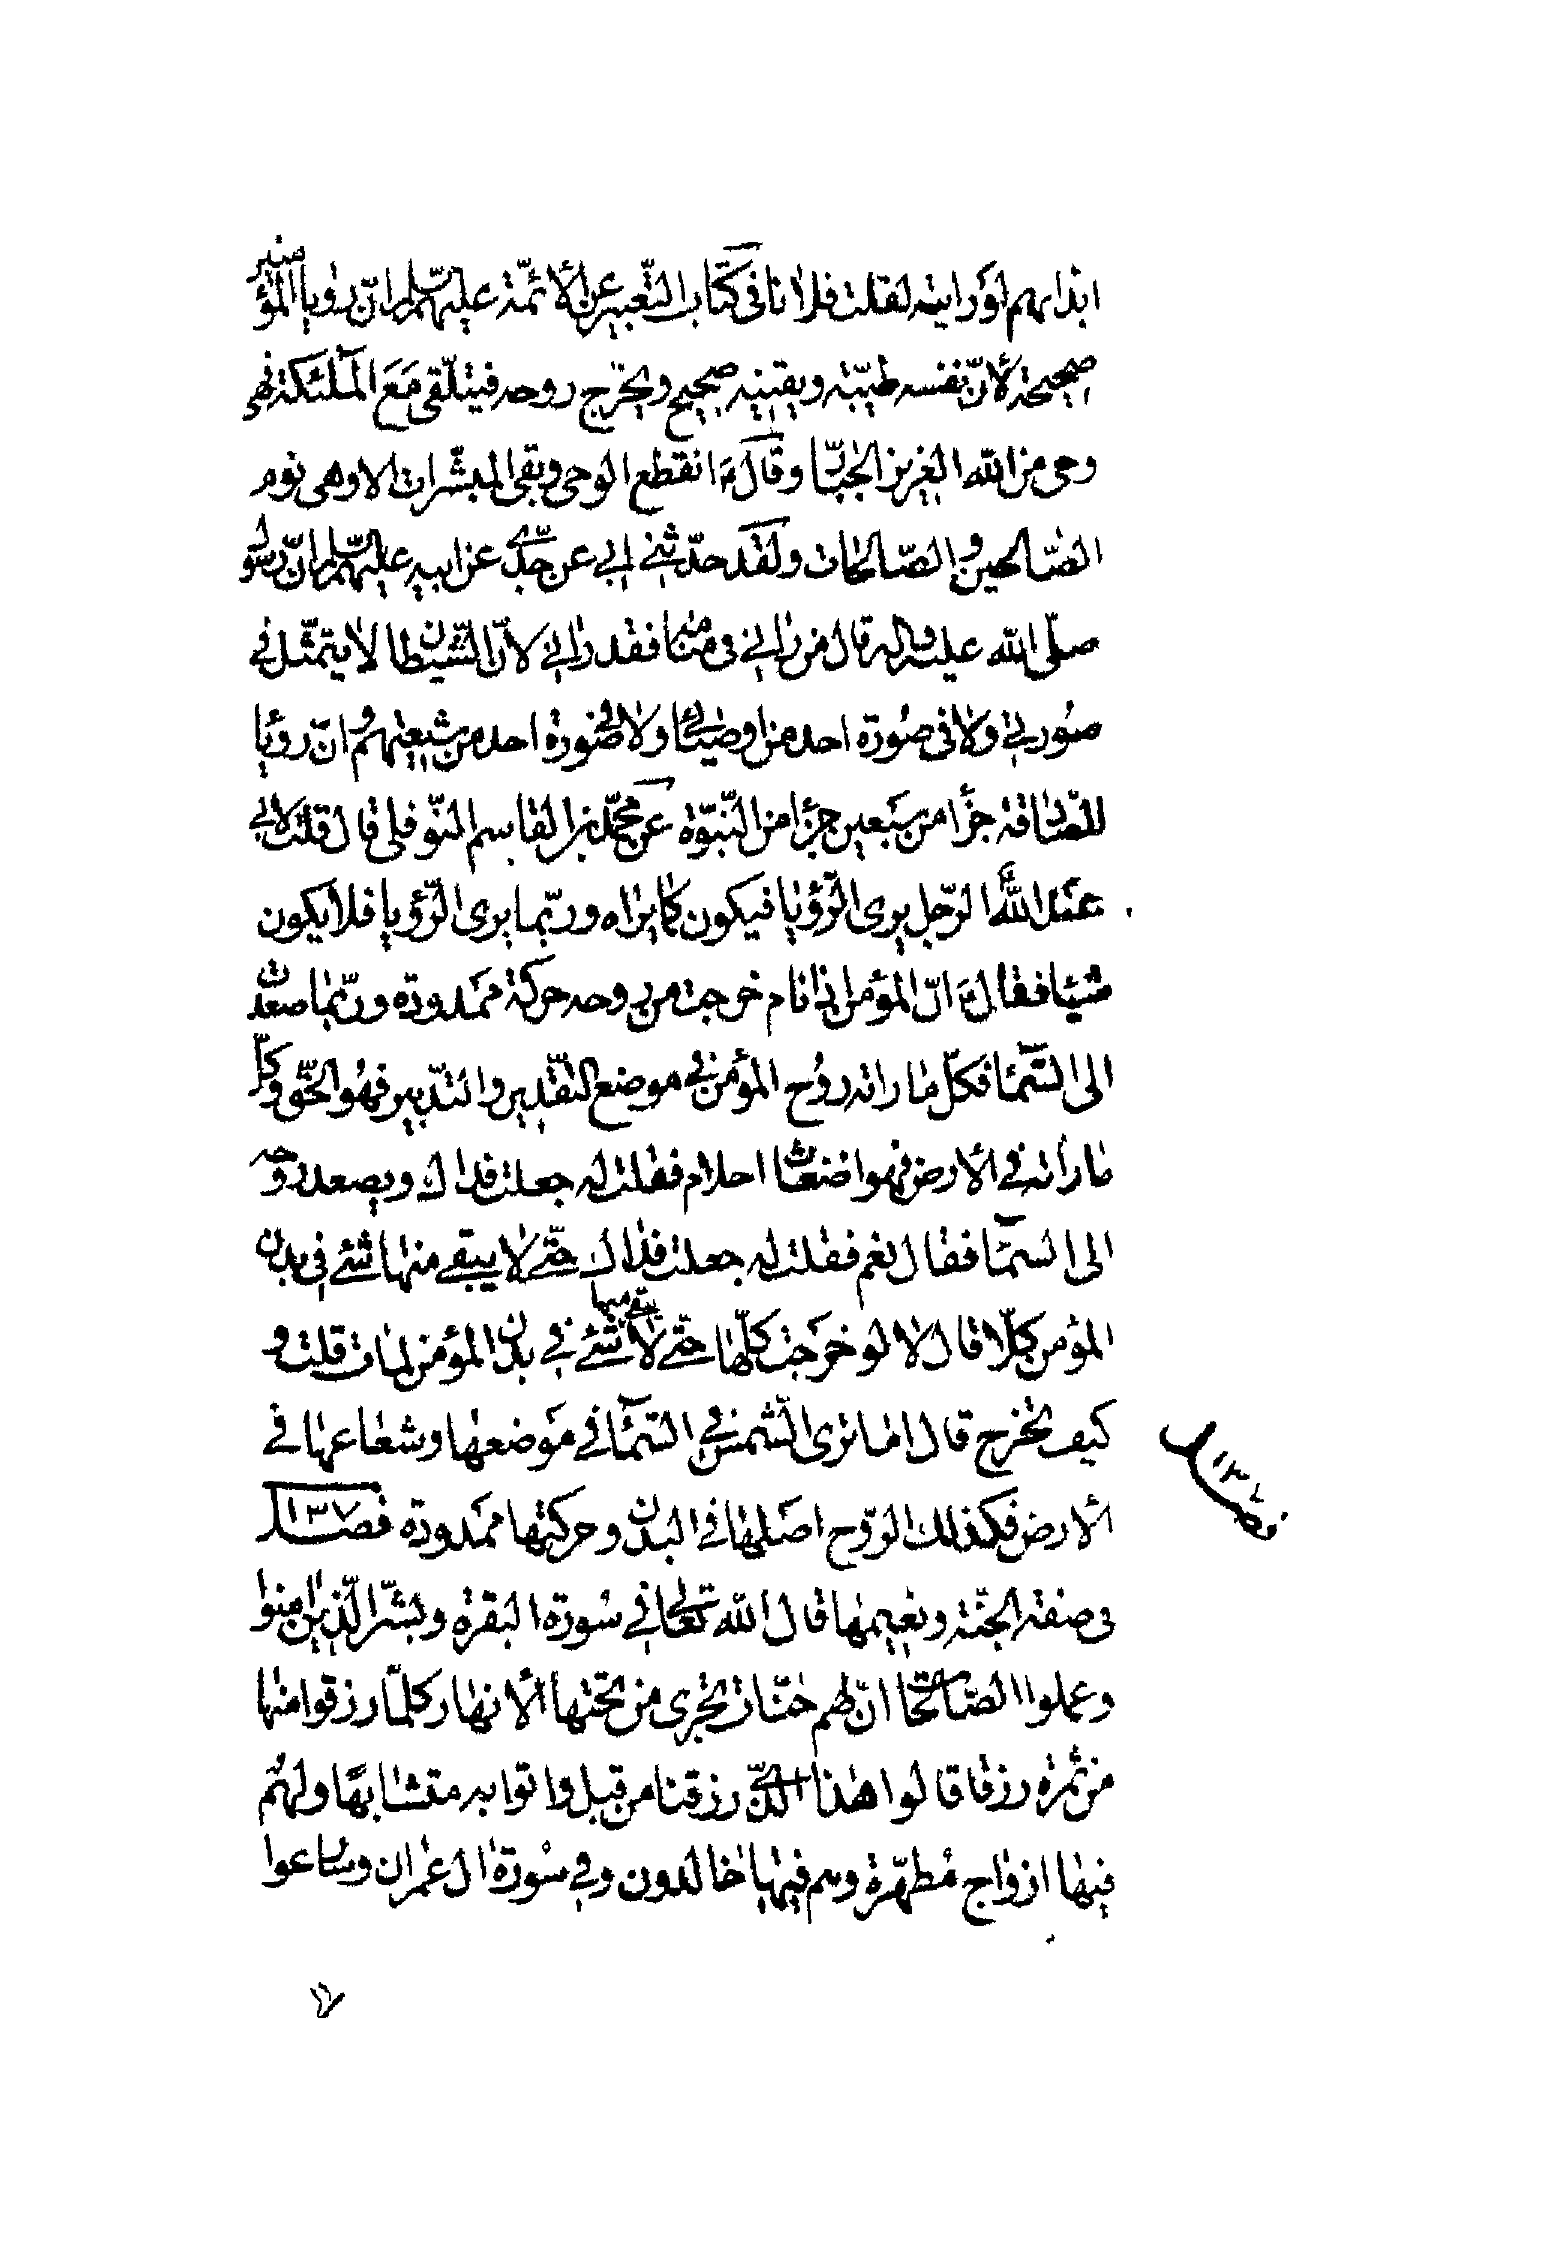 ابدانهم او رايته لقلت فلانا فى كتاب التعبير عن الائمّة عليهم السلم انّ رؤيا المؤمنين
صحيحة لانّ نفسه طيّبة ويقينه صحيح ويخرج روحه فيتلقى مع الملئكة فهى
وحى من الله العزيز الجبّار وقال ع انقطع الوحى وبقى المبشرات الا وهى نوم
الصّالحين والصّالحات ولقد حدّثنى ابى عن جدّى عن ابيه عليهم السلم انّ رسول
صلّى الله عليه واله قال من رانى فى منامه فقد رانى لانّ الشيطان لا يتمثّل فى
صورتى ولا فى صورة احد من اوصيائى ولا فى صورة احد من شيعتهم وانّ رؤيا
الصّادقة جزأ من سبعين جزأ من النّبوّة عن محمّد بن القاسم النّوفلى قال قلت لابى
عبد الله الرّجل يرى الرّؤيا فيكون كما يراه وربّما يرى الرّؤيا فلا يكون
شيئا فقال ع انّ المؤمن اذا نام خرجت من روحه حركة ممدودة وربّما صعدت
الى السّماء فكلّ ما راته روح المؤمن فى موضع التقدير والتدبير فهو الحقّ وكلّ
ما راته فى الارض فهو اضغاث احلام فقلت له جعلت فداك ويصعد روحه
الى السماء فقال نعم فقلت له جعلت فداك حتّى لا يبقى منها شئ فى بدن
المؤمن كلّا قال لا لو خرجت كلّها حتّى لا يبقى منها شئ فى بدن المؤمن لمات قلت و
كيف تخرج قال اما ترى الشّمس فى السّماء فى موضعها وشعاعها فى
الارض فكذلك الرّوح اصلها فى البدن وحركتها ممدودة فصل ١٣٧
فى صفة الجنّة ونعيمها قال الله تعالى فى سورة البقرة وبشّر الّذين امنوا
وعملوا الصّالحات انّ لهم جنّات تجرى من تحتها الانهار كلّما رزقوا منها
من ثمرة رزقا قالوا هذا الّذى رزقنا من قبل واتوا به متشابها ولهم
فيها ازواج مطهّرة وهم فيها خالدون وفى سورة ال عمران وسارعوا
فصل ١٣٧